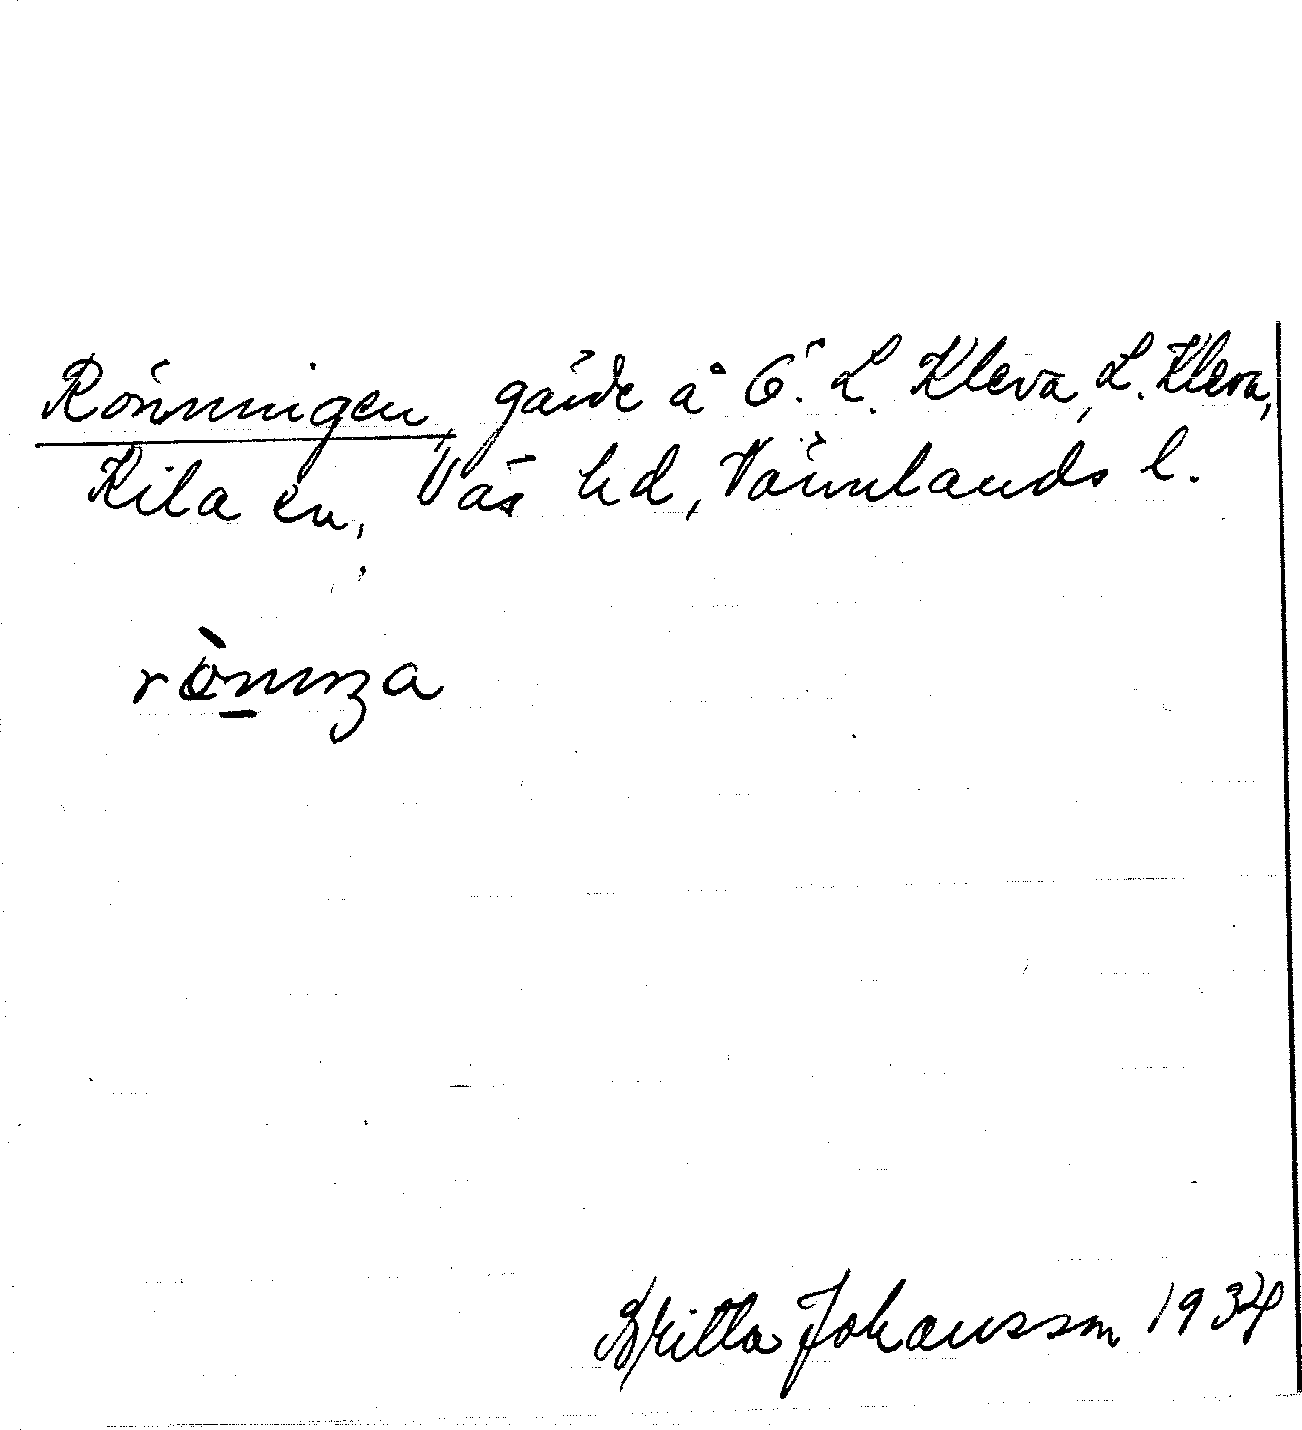 Rönningen, gärde å Ö. L. Kleva, L. Kleva,
Kila sn, Näs hd, Värmlands l.
Britta Johansson 1934